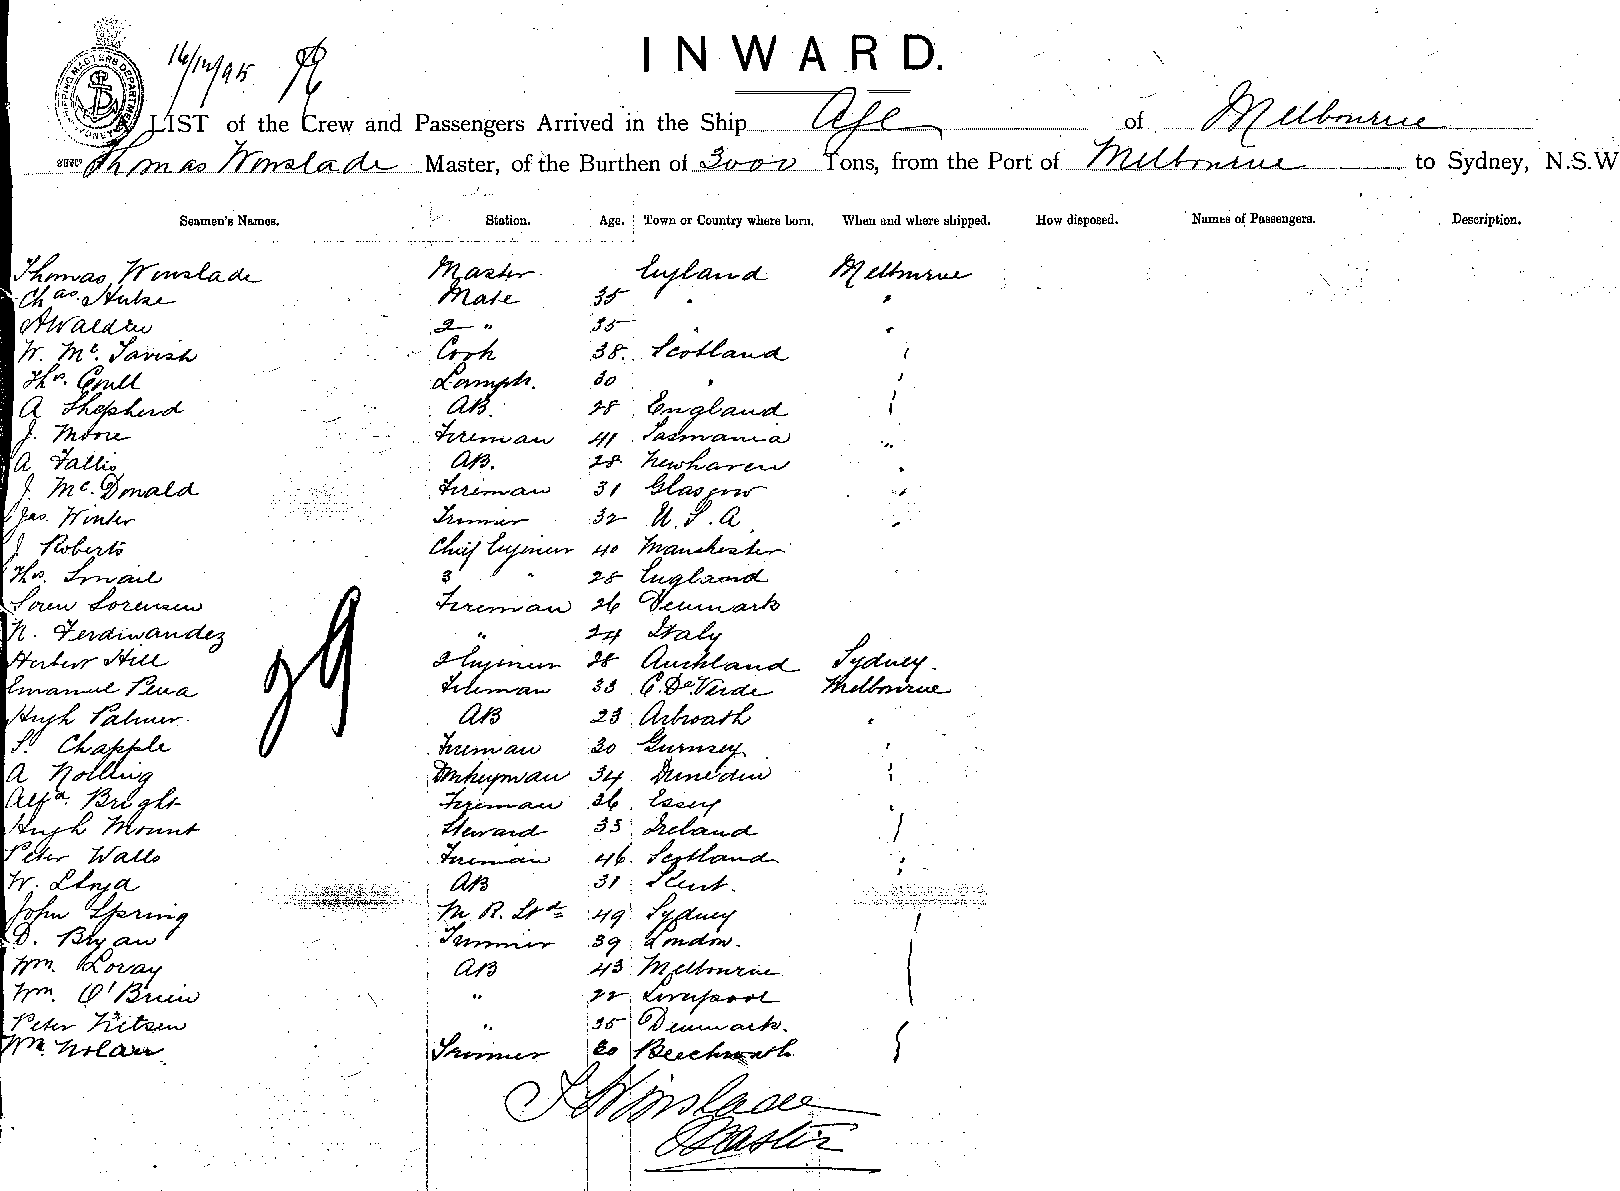 SHIPPING MASTER'S DEPARTMENT
16/12/95
INWARD.
LIST of the Crew and Passengers Arrived in the Ship Age of Melbourne
Thomas Winslade Master, of the Burthen of 3000 Tons, from the Port of Melbourne to Sydney, N.S.W
Seamen's Names. Station. Age. Town or Country where born. When and where shipped. How disposed. Names of Passengers. Description.
Thomas Winslade Master England Melbourne
Chas. Mate 35 "
A Walden 2 " 35 "
W. Mc. Tavish Cook 38. Scotland
Thos. Lampt. 30 "
A Shepherd AB. 28 England
J. Moore Fireman 41 Tasmania "
A Fallis AB. 28 Newhaven "
J. Mc. Donald Fireman 31 Glasgow "
Jas. Winter Trimmer 32 U.S.A "
J Roberts Chief Engineer 40 Manchester
Thos. Smail 3 " 28 England
Soren Sorensen Fireman 26 Denmark
N. Ferdinandez " 24 Italy
Herbert Hill 2 Engineer 28 Auckland Sydney.
Emanuel Pena Fireman 33 C. De Verde Melbourne
Hugh Palmer. AB 23 Arbroath "
S. Chapple Fireman 30 Gurnsey "
A Nolling Donkeyman 34 Dunedin "
Alfd. Bright Fireman 36 Essex "
Hugh Mount Steward 33 Ireland
Peter Walls Fireman 46. Scotland
W. Lloyd AB 31 Kent.
John Spring M.R. Std 49 Sydney
D. Bryan Trimmer 39 London.
Wm. Loray AB 43 Melbourne
Wm. O'Brien " 22 Liverpool
Peter " 35 Denmark.
Wm. Nolan Trimmer 20 Beechworth
T Winslade
Master